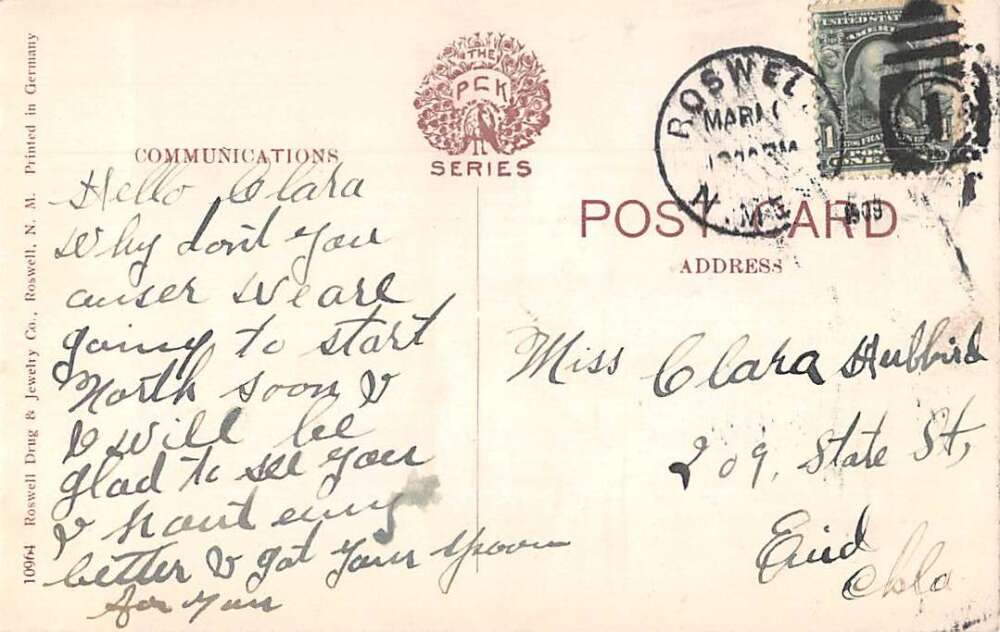 10964 Roswell Drug & Jewelry Co., Roswell, N. M. Printed in Germany
THE
PCK
SERIES
COMMUNICATIONS
Hello Clara
Why dont you
anser We are
going to start
North soon &
I will be
glad to see you
I haint eny
better I got your spoon
for you
ROSWEL
MAR
N. MEX
1909
UNITED STAT
1
ONE
POST CARD
ADDRESS
Miss Clara Hubbird
209, State St,
Enid
Okla